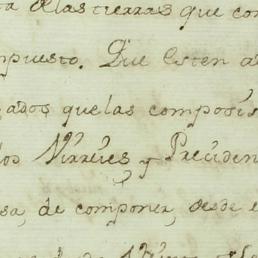 a de las tierras que con
mpuesto. Que esten a
ados quelas composis
los Virreyes y Presiden
sa, de componer, desde e